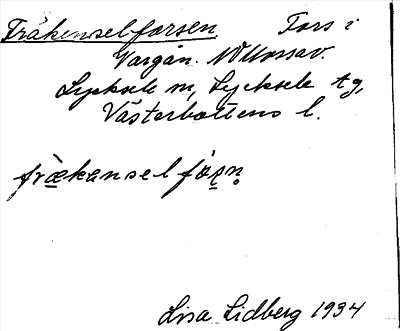 Fräkenselforsen. Fors i
Vargån. NV Mossav.
Lycksele sn, Lycksele tg,
Västerbottens l.
fræ̀kanselfóṣṇ
Lisa Lidberg 1934